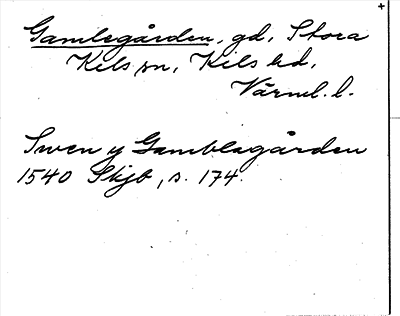 Gamlegården, gd, Stora
Kils sn, Kils hd,
Värml. l.
Swen y Gamblagården
1540 Skjb, s. 174.